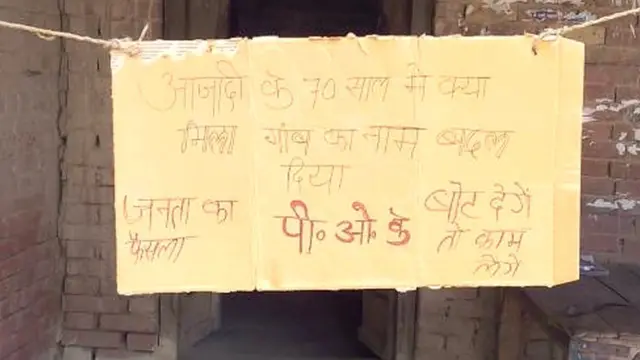 आजादी के 70 साल मे क्या
मिला गांव का नाम बदल
दिया
जनता का
फैसला
पी० ओ० के
बोट देगें
तो काम
लेगे